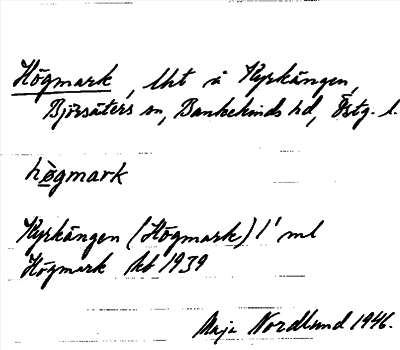 Högmark, lht å Kyrkängen,
Björsäters sn, Bankekinds hd, Östg. l.
hògmark
Kyrkängen (Högmark) 1' ml
Högmark kb 1939
Maja Nordlund 1946.